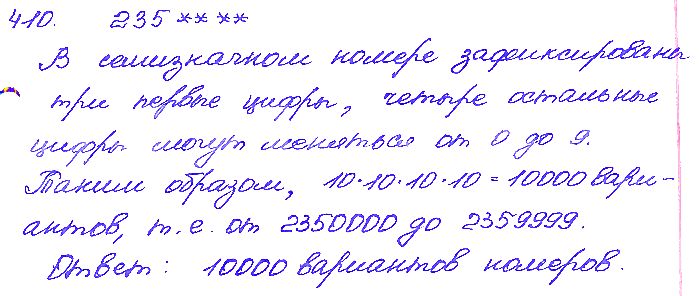 410. 235 ****
В семизначном номере зафиксированы
три первые цифры, четыре остальные
цифры могут меняться от 0 до 9.
Таким образом, 10·10·10·10=10000 вари-
антов, т.е. от 2350000 до 2359999.
Ответ: 10000 вариантов номеров.